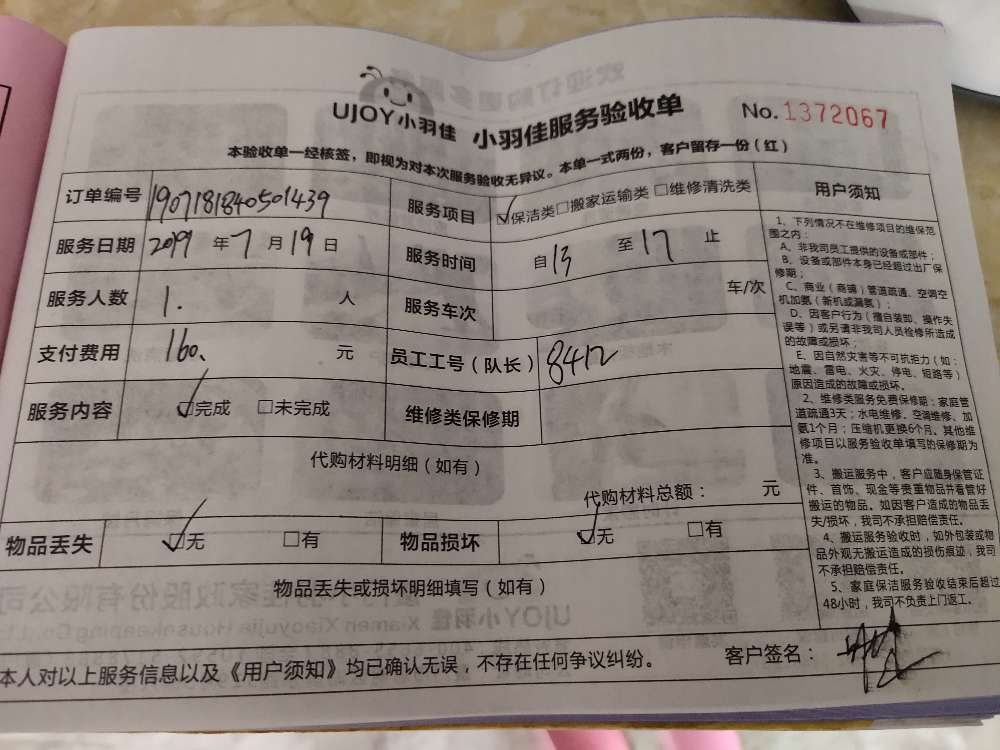 UJOY小羽佳 小羽佳服务验收单 No.1372067
本验收单一经核签，即视为对本次服务验收无异议。本单一式两份，客户留存一份（红）
订单编号 1907181840501439 服务项目 ☑保洁类□搬家运输类□维修清洗类
服务日期 2019 年 7 月 19 日 服务时间 自 13 至 17 止
服务人数 1. 人 服务车次 车/次
支付费用 160、 元 员工工号（队长） 8412
服务内容 ☑完成 □未完成 维修类保修期
代购材料明细（如有）
代购材料总额： 元
物品丢失 ☑无 □有 物品损坏 ☑无 □有
物品丢失或损坏明细填写（如有）
本人对以上服务信息以及《用户须知》均已确认无误，不存在任何争议纠纷。 客户签名：
用户须知
1、下列情况不在维修项目的维保范
围之内：
A、非我司员工提供的设备或部件；
B、设备或部件本身已经超过出厂保
修期；
C、商业（商铺）管道疏通、空调空
机加氨（新机或漏氨）；
D、因客户行为（擅自装卸、操作失
误等）或另请非我司人员检修所造成
的故障或损坏；
E、因自然灾害等不可抗拒力（如：
地震、雷电、火灾、停电、短路等）
原因造成的故障或损坏。
2、维修类服务免费保修期：家庭管
道疏通3天；水电维修、空调维修、加
氨1个月；压缩机更换6个月。其他维
修项目以服务验收单填写的保修期为
准。
3、搬运服务中，客户应随身保管证
件、首饰、现金等贵重物品并看管好
搬运的物品。如因客户造成的物品丢
失/损坏，我司不承担赔偿责任。
4、搬运服务验收时，如外包装或物
品外观无搬运造成的损伤痕迹，我司
不承担赔偿责任。
5、家庭保洁服务验收结束后超过
48小时，我司不负责上门返工。